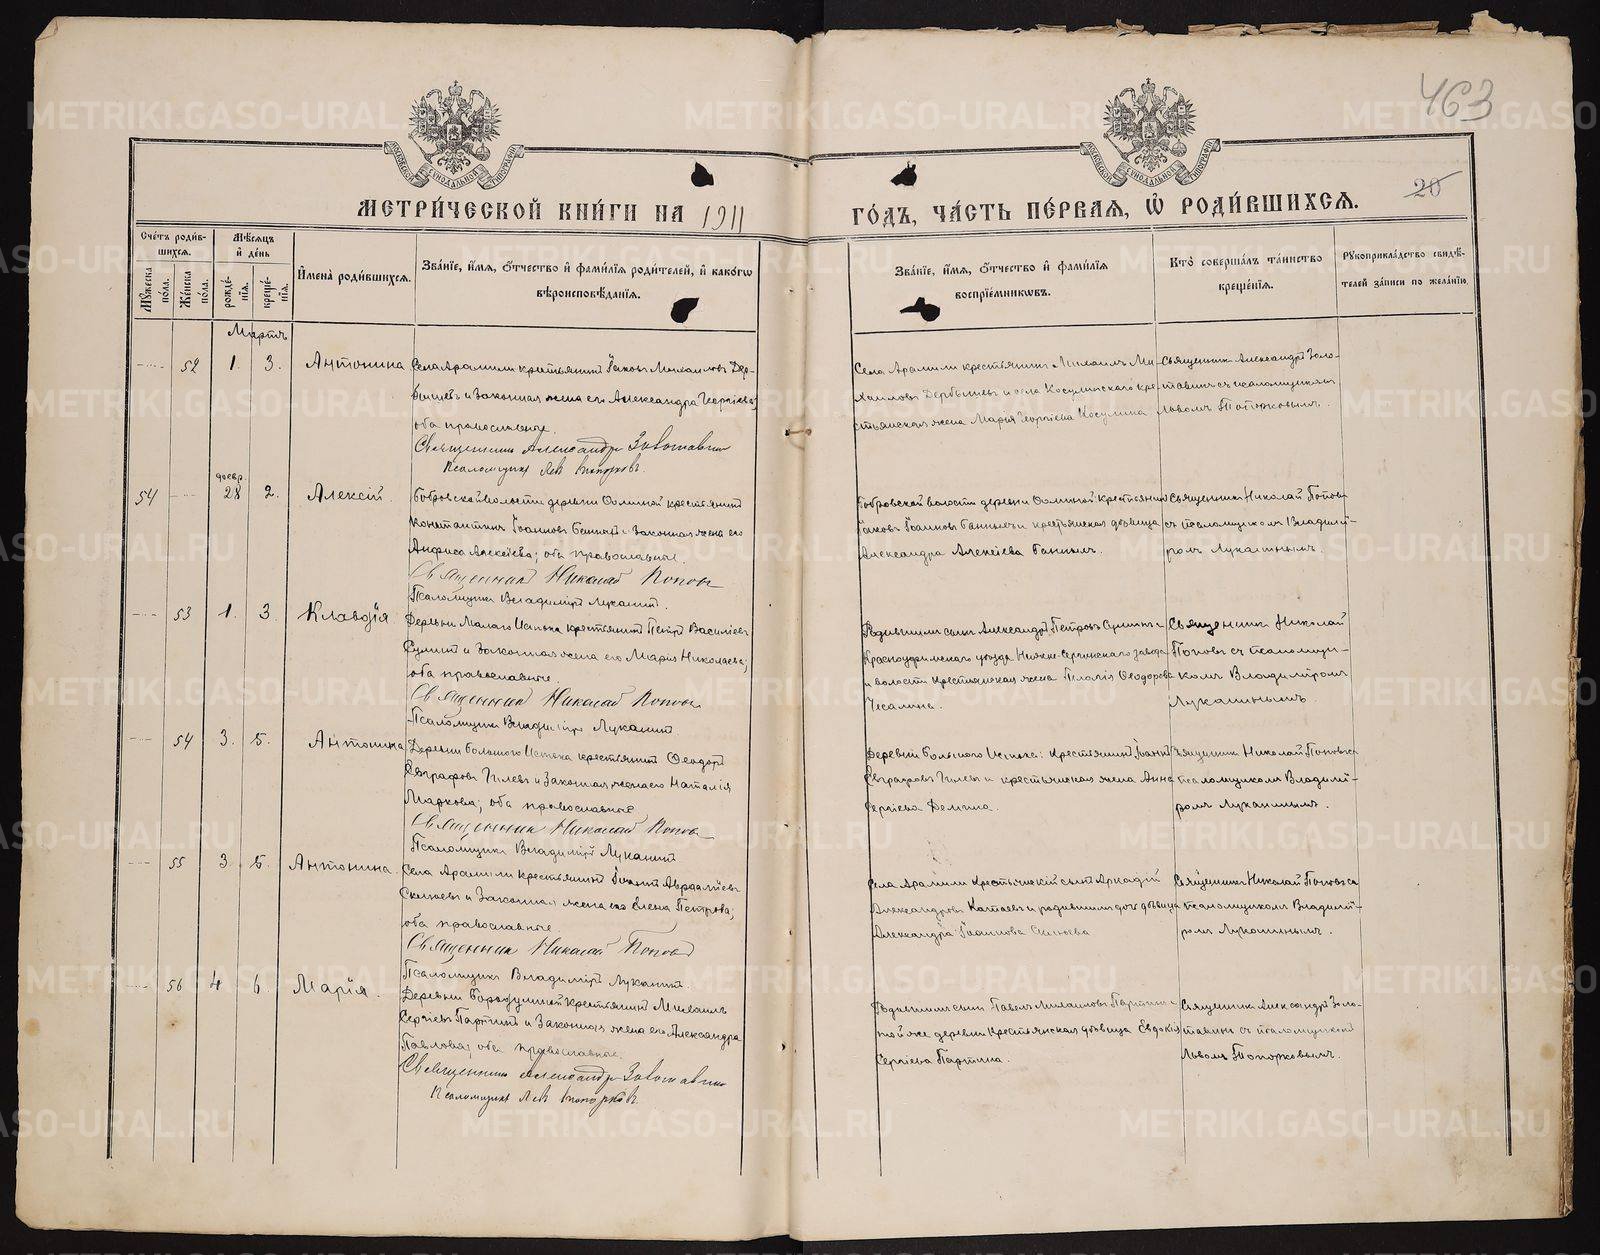 463
20
МОСКОВСКОЙ СѴНОДАЛЬНОЙ ТИПОГРАФІИ
МОСКОВСКОЙ СѴНОДАЛЬНОЙ ТИПОГРАФІИ
МЕТРИ́ЧЕСКОЙ КНИ́ГИ НА 1911
ГО́ДЪ, ЧА́СТЬ ПЕ́РВАЯ, Ѽ РОДИ́ВШИХСЯ.
Сче́тъ роди́в-
шихся.
Мꙋ́жеска по́ла.
Же́нска по́ла.
Мѣ́сяцъ
и҆ де́нь
рожде́-
нїѧ.
креще́-
нїѧ.
И҆мена̀ роди́вшихся.
Зва́нїе, и҆́мѧ, ѻ҆́тчество и҆ фами́лїѧ роди́телей, и҆ како́гѡ
вѣроисповѣ́данїѧ.
Зва́нїе, и҆́мѧ, ѻ҆́тчество и҆ фами́лїѧ
воспрїе́мникѡвъ.
Кто̀ соверша́лъ та́инство
креще́нїѧ.
Рꙋкоприкла́дство свидѣ́-
телей за́писи по жела́нїю.
Мартъ
52 1. 3. Антонина
Села Арамили крестьянинъ Іаковъ Михаиловъ Дер-
бышевъ и законная жена его Александра Георгіева;
оба православные.
Священникъ Александръ Золотавинъ
Псаломщикъ Левъ Топорковъ.
Села Арамили крестьянинъ Михаилъ Ми-
хаиловъ Дербышевъ и села Косулинскаго кре-
стьянская жена Марія Георгіева Косулина
Священникъ Александръ Золо-
тавинъ съ псаломщикомъ
Львомъ Топорковымъ.
февр.
54 28 2. Алексій.
Бобровской волости деревни крестьянинъ
Константинъ Іоанновъ и законная жена его
Анфиса Алексіева; оба православные.
Священникъ Николай Поповъ
Псаломщикъ Владиміръ Луканинъ.
Бобровской волости деревни крестьянинъ
Іаковъ Іоанновъ и крестьянская дѣвица
Александра Алексіева
Священникъ Николай Поповъ
съ псаломщикомъ Владимі-
ромъ Луканинымъ.
53 1. 3. Клавдія
Деревни Малаго Истока крестьянинъ Петръ Василіевъ
и законная жена его Марія Николаева;
оба православные.
Священникъ Николай Поповъ
Псаломщикъ Владиміръ Луканинъ
Родившихъ сынъ Александръ Петровъ и
Красноуфимскаго уѣзда Нижне-Сергинскаго завода
и волости крестьянская жена Пелагія Ѳеодорова
Чесалина.
Священникъ Николай
Поповъ съ псаломщи-
комъ Владиміромъ
Луканинымъ.
54 3. 5. Антонина
Деревни Большого Истока крестьянинъ Ѳеодоръ
Евграфовъ Гилевъ и законная жена его Наталія
Маркова; оба православные
Священникъ Николай Поповъ
Псаломщикъ Владиміръ Луканинъ
Деревни Большого Истока: крестьянинъ Іоаннъ
Евграфовъ Гилевъ и крестьянская жена Анна
Сергіева Демина.
Священникъ Николай Поповъ съ
псаломщикомъ Владимі-
ромъ Луканинымъ.
55 3. 5. Антонина.
Села Арамили крестьянинъ Іоаннъ
и законная жена его Елена Петрова;
оба православные
Священникъ Николай Поповъ
Псаломщикъ Владиміръ Луканинъ.
Села Арамили крестьянскій сынъ Аркадій
Александровъ Катаевъ и родившихъ дочь дѣвица
Александра Іоаннова
Священникъ Николай Поповъ съ
псаломщикомъ Владимі-
ромъ Луканинымъ.
56 4 6. Марія.
Деревни Бородулиной крестьянинъ Михаилъ
Сергіевъ Партинъ и законная жена его Александра
Павлова; оба православные.
Священникъ Александръ Золотавинъ
Псаломщикъ Левъ Топорковъ.
Родившихъ сынъ Павелъ Михаиловъ Партинъ и
той же деревни крестьянская дѣвица Евдокія
Сергіева Партина.
Священникъ Александръ Золо-
тавинъ съ псаломщикомъ
Львомъ Топорковымъ.
METRIKI.GASO-URAL.RU